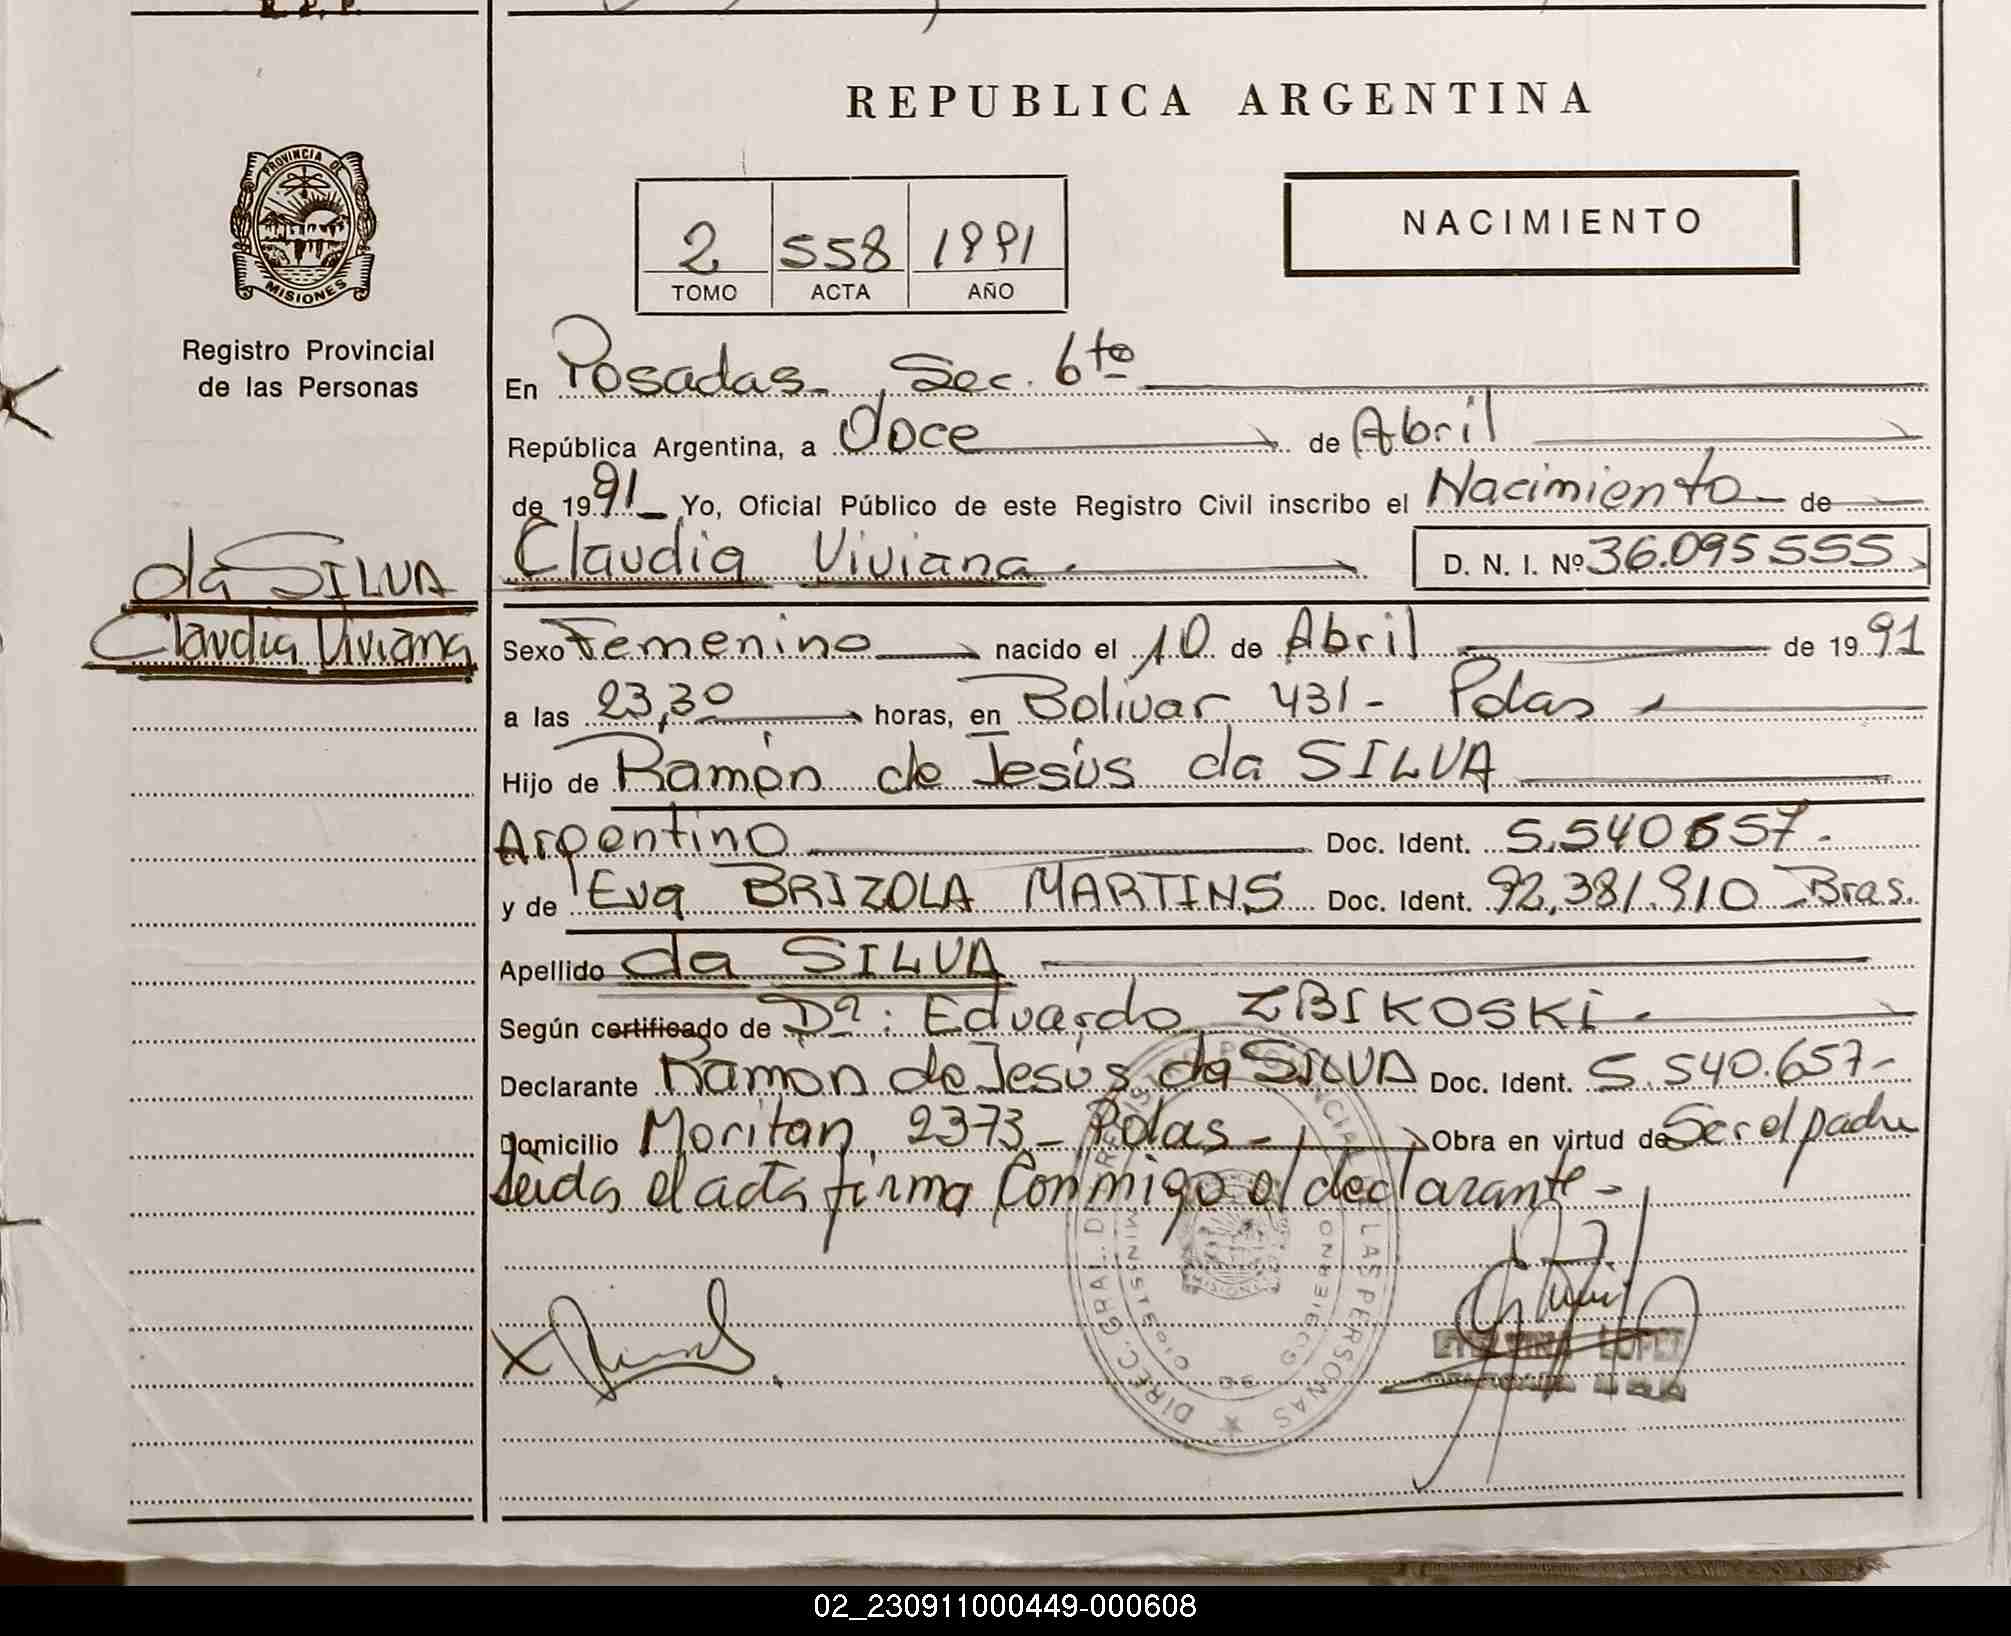 R. P. P.
REPUBLICA ARGENTINA
PROVINCIA DE
MISIONES
NACIMIENTO
2 558 1991
TOMO ACTA AÑO
Registro Provincial
de las Personas
En Posadas - Sec. 6ta
República Argentina, a doce de Abril
de 1991 Yo, Oficial Público de este Registro Civil inscribo el Nacimiento de
Claudia Viviana D. N. I. Nº 36.095555
da SILVA
Claudia Viviana
Sexo Femenino nacido el 10 de Abril de 1991
a las 23,30 horas, en Bolivar 431 - Pdas
Hijo de Ramón de Jesús da SILVA
Argentino Doc. Ident. 5.540657.
y de Eva BRIZOLA MARTINS Doc. Ident. 92.381.910 Bras.
Apellido da SILVA
Según certificado de Dº: Eduardo ZBIKOSKI
Declarante Ramón de Jesús da SILVA Doc. Ident. 5.540.657-
Domicilio Moritan 2373 - Pdas - Obra en virtud de Ser el padre
Leida el acta firma Conmigo el declarante -
DIREC. GRAL. DEL REGISTRO PROVINCIAL DE LAS PERSONAS
MINISTERIO DE GOBIERNO
02_230911000449-000608